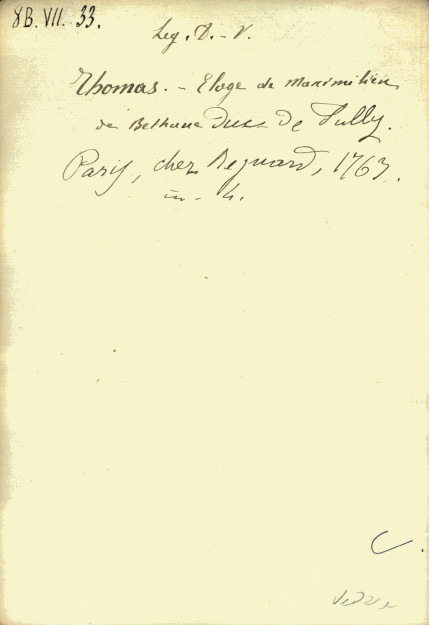 8B. VII. 33.
Leg. D. - V.
Thomas. - Eloge de Maximilien
de Bethune Duc de Sully.
Paris, chez Regnard, 1763.
in-4.
C.